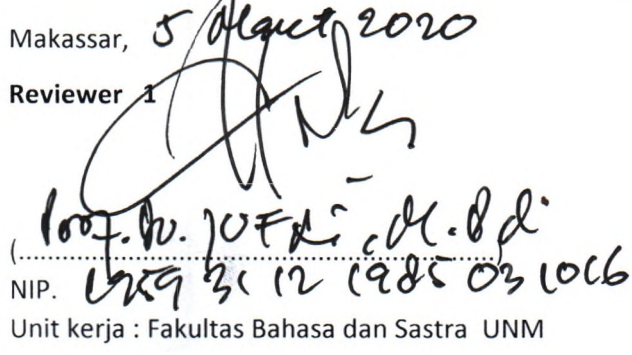 Makassar, 5 Maret 2020
Reviewer 1
Prof. Dr. Jufri, M.Pd
NIP. 19593112 1985 03 1016
Unit kerja : Fakultas Bahasa dan Sastra UNM